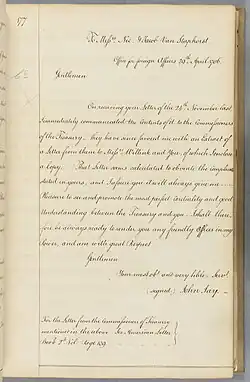 57
To Messrs. Nic. & Jacob Van Staphorst
Office for foreign Affairs 29th. April 1786
Gentlemen
On receiving your Letter of the 24th. November last,
I immediately communicated the Contents of it to the Commissioners
of the Treasury — they have since favored me with an Extract of
a Letter from them to Messrs. Willink and You, of which I enclose
a Copy. That Letter seems calculated to obviate the complaints
stated in yours, and I assure you it will always give me
Pleasure to see and promote the most perfect Cordiality and good
Understanding between the Treasury and you — I shall there-
you be always ready to render you any friendly Offices in my
Power, and am with great Respect
Gentlemen
Your most obt. and very hble. Servt.
(signed) John Jay —
For the Letter from the Commissioners of Treasury
mentioned in the above See American Letter
Book 2d. Vol: Page 439